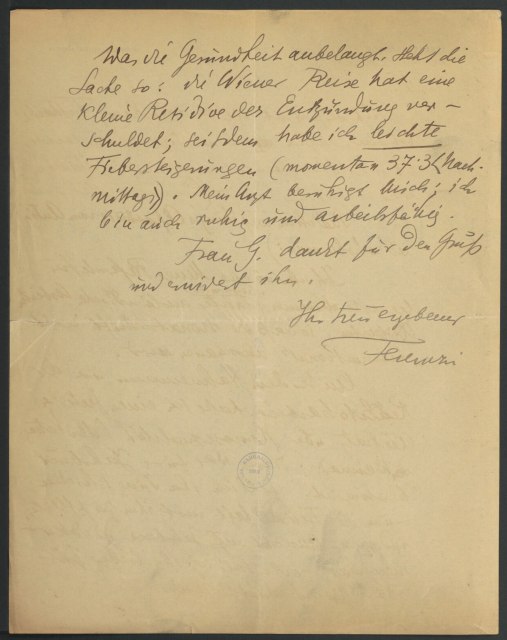 Was die Gesundheit anbelangt, steht die
Sache so: die Wiener Reise hat eine
kleine Rezidive der Entzündung ver-
schuldet; seitdem habe ich leichte
Fiebersteigerungen (momentan 37·3 (Nach-
mittags)). Mein Arzt beruhigt mich; ich
bin auch ruhig und arbeitsfähig.
Frau G. dankt für den Gruß
und erwidert ihn.
Ihr treu ergebener
Ferenczi